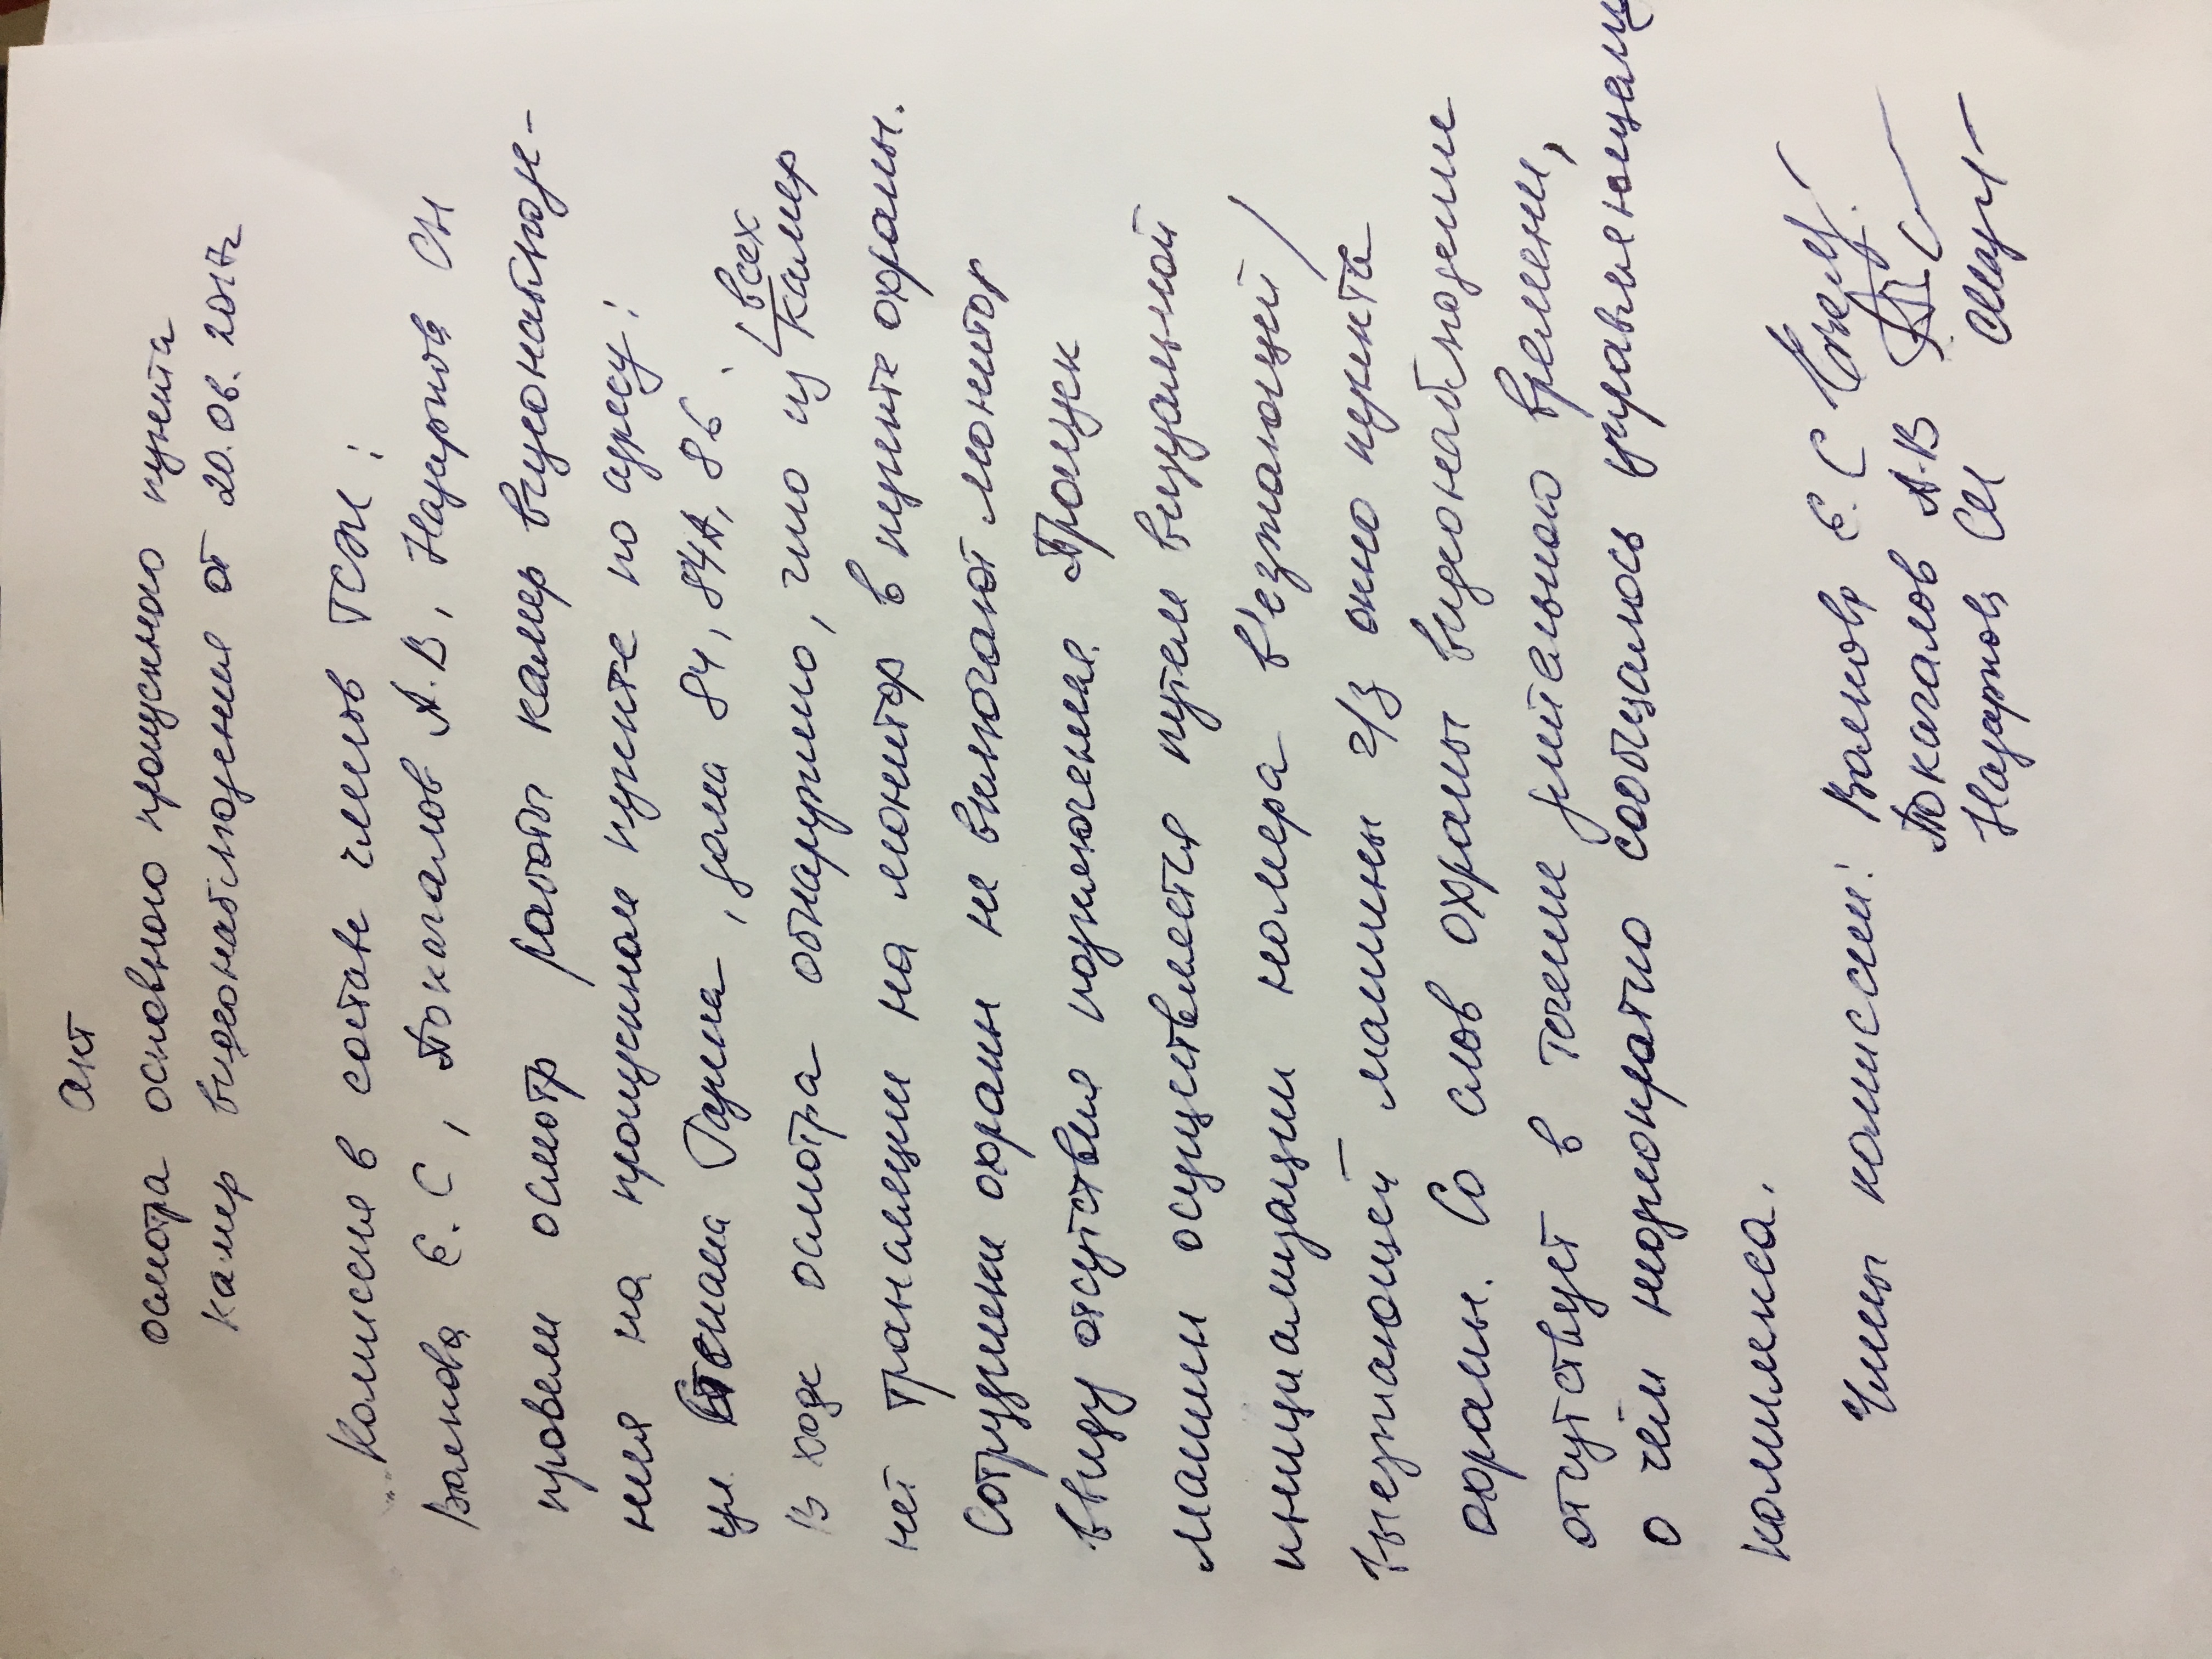 Акт
осмотра основного пропускного пункта
камер видеонаблюдения от 20.06.2017г
Комиссия в составе членов ТСЖ:
Волкова Е.С, Покаталов А.В,
провели осмотр работы камер видеонаблюде-
ния на пропускном пункте по адресу:
ул Степана Разина, дома 84, 84А, 86.
В ходе осмотра обнаружено, что из всех камер
нет трансляции на монитор в пункте охраны.
Сотрудники охраны не включают монитор
ввиду отсутствия подключения. Пропуск
машин осуществляется путем визуальной
инициализации номера въезжающей/
выезжающей машины ч/з окно пункта
охраны. Со слов охраны видеонаблюдение
отсутствует в течение длительного времени,
о чём неоднократно сообщалось управляющему
комплекса.
Члены комиссии: Волкова Е.С
Покаталов А.В